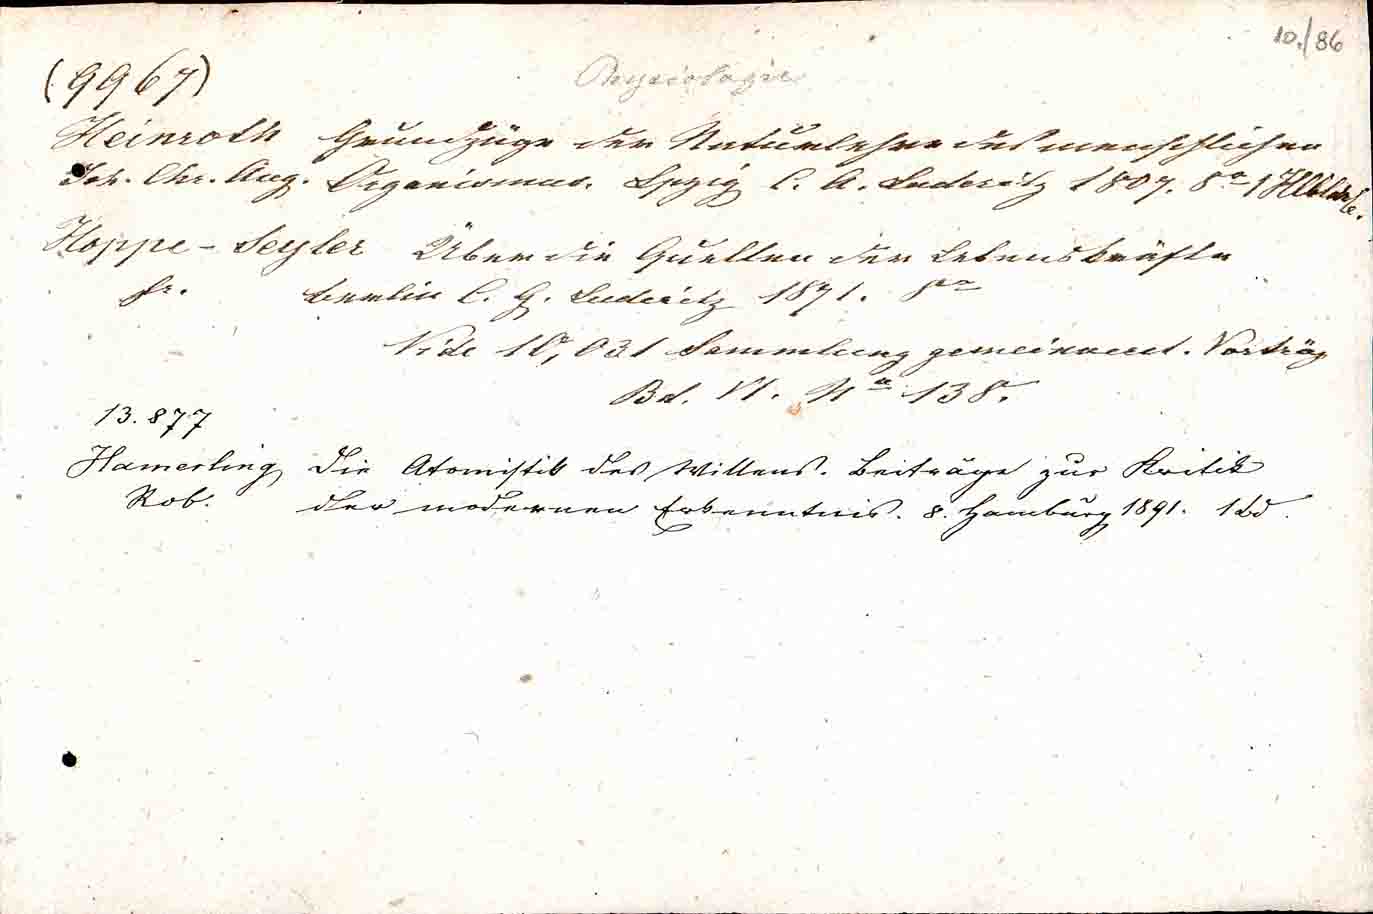 10./86
Physiologie
(9967)
Heinroth Grundzüge der Naturlehre des menschlichen
Joh. Chr. Aug. Organismus. Lpzig C. A. 1807. 8º 1 Hlbldrb.
Hoppe-Seyler Über die Quellen der Lebenskräfte
Fr. Berlin C. G. Luderitz 1871. 8vo
Vide 10,031 Sammlung gemeinverst. Vorträg
Bd. VI. Nº 138.
13.877
Hamerling Die Atomistik des Willens. Beiträge zur Kritik
Rob. der modernen Erkenntnis. 8. Hamburg 1891. 1 Bd.